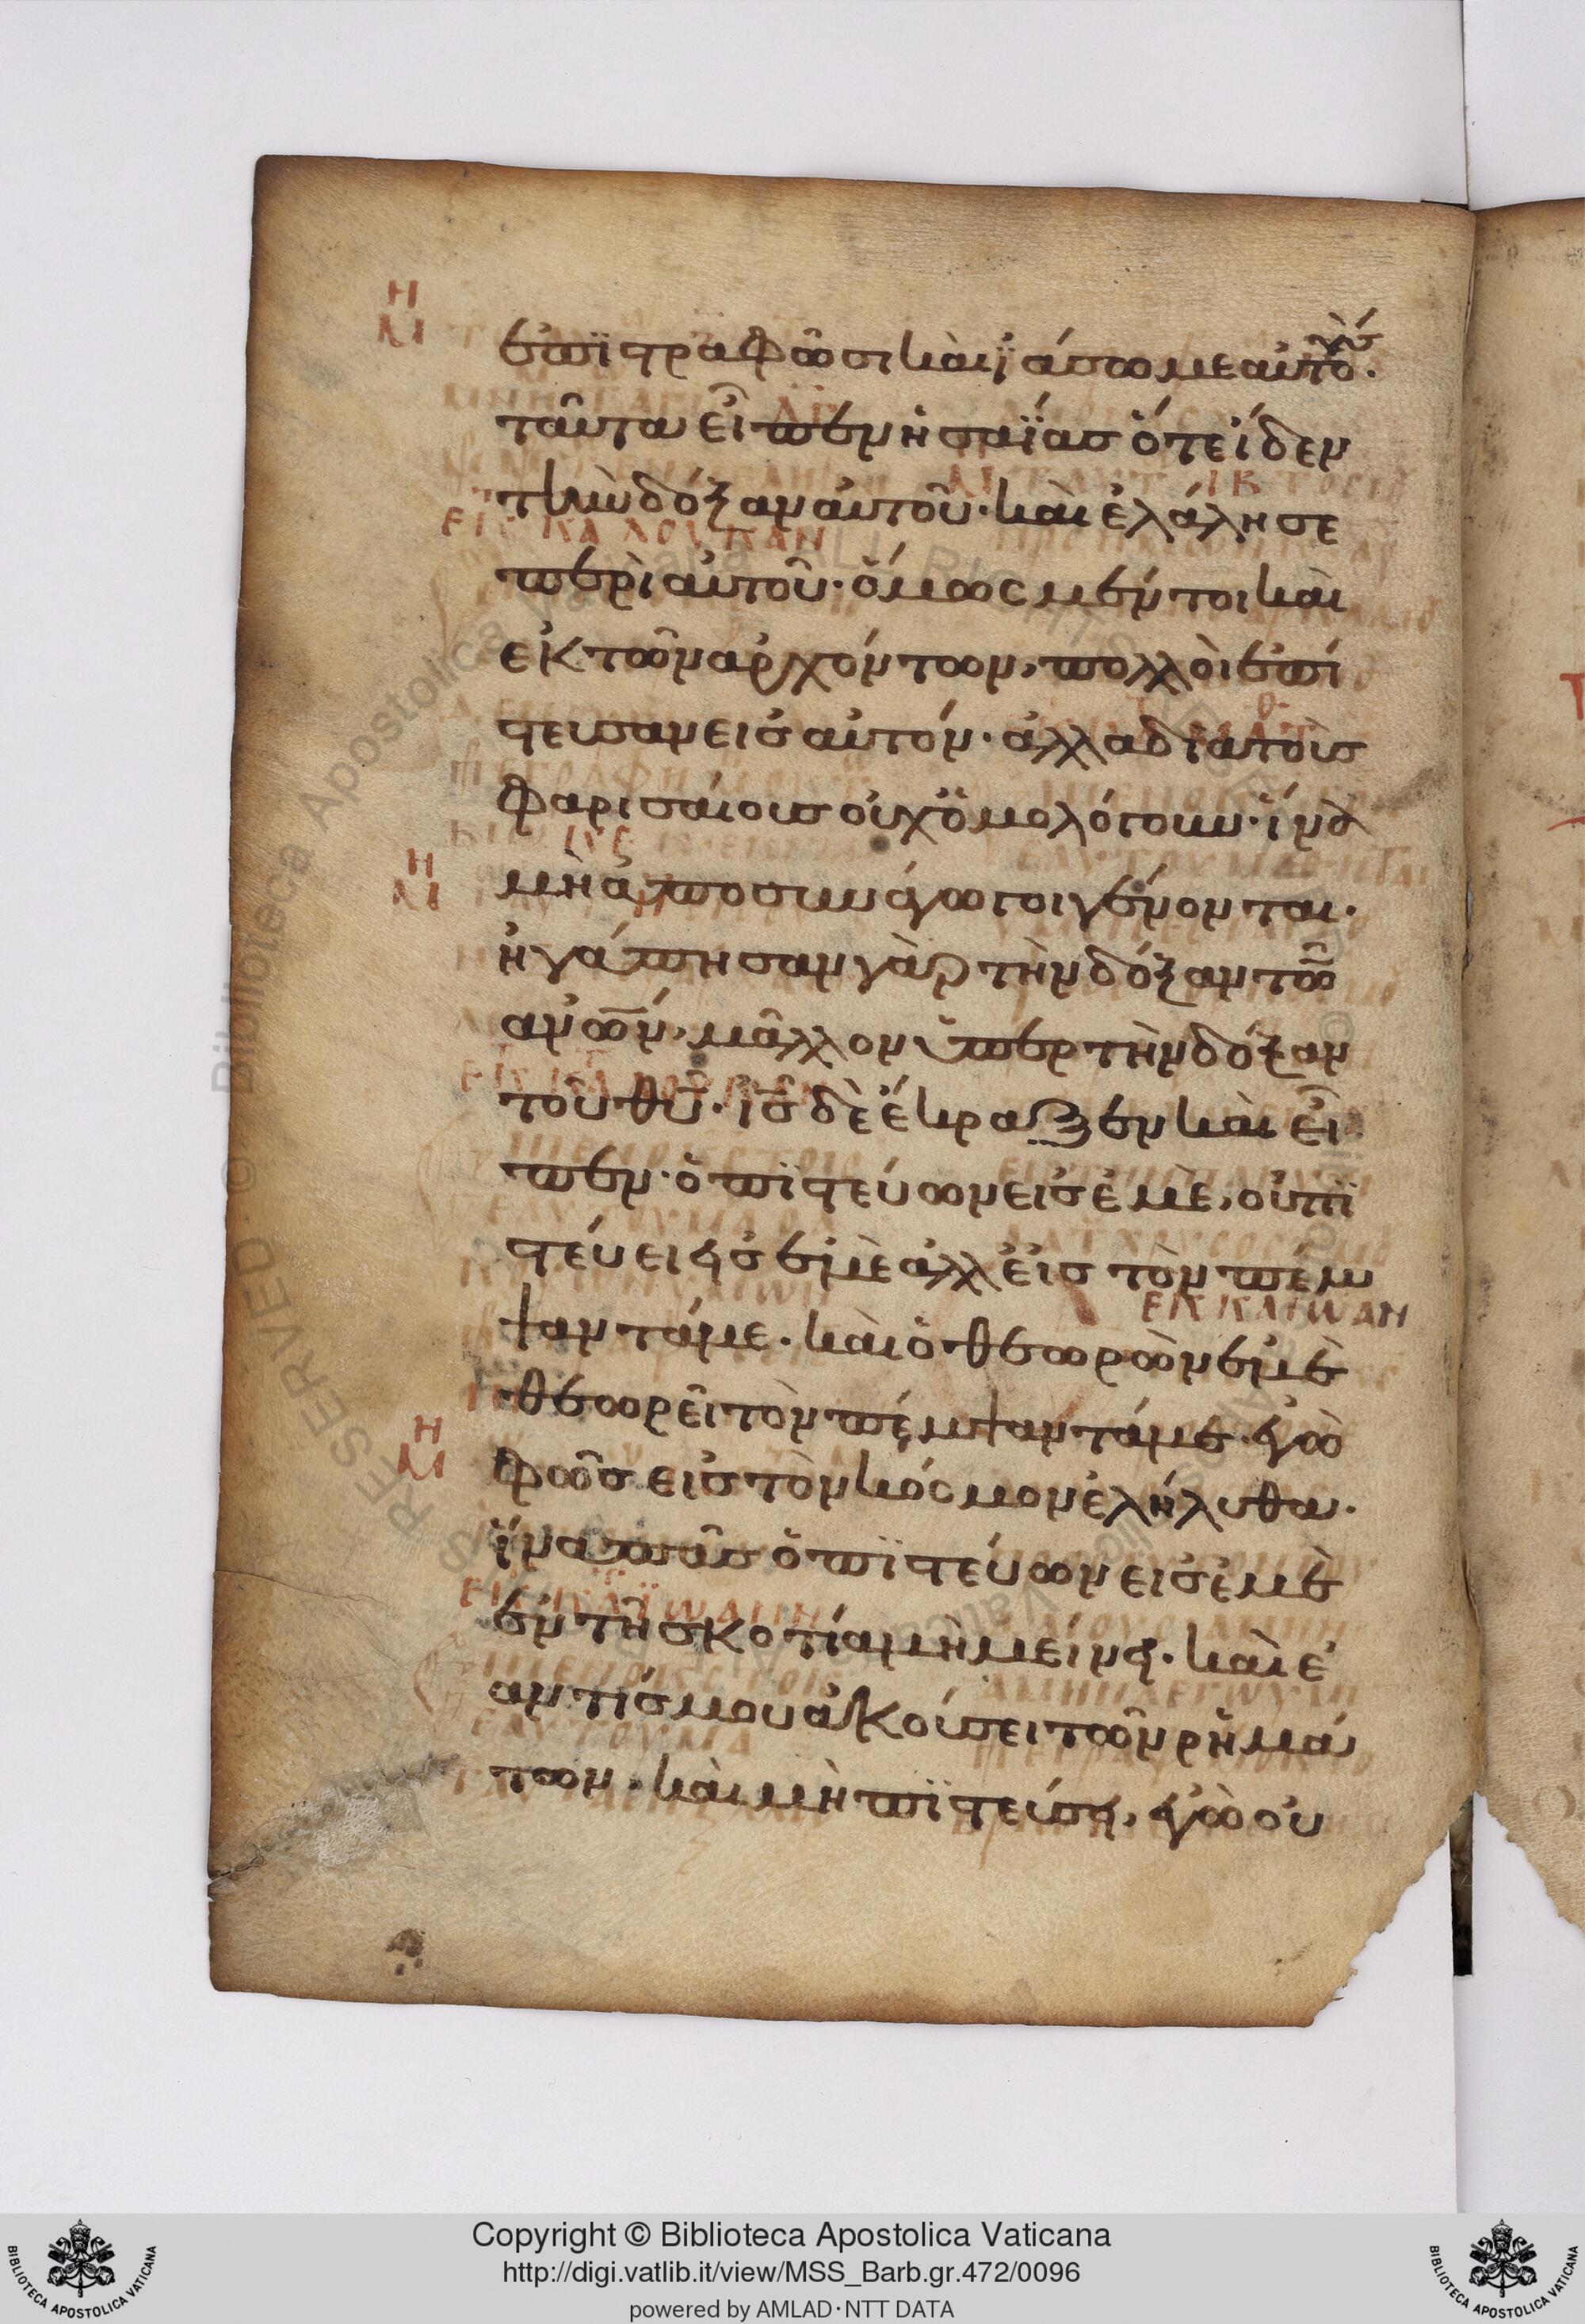 ἐπϊστραφῶσι καὶ ϊάσωμε αὐτούς·
ταῦτα εἶπεν ἡσαΐας ὅτε ίδεν
τὴν δόξαν αυτοῦ· καὶ ἐλάλησε
περὶ αὐτοῦ· ὅμως μέντοι καὶ
εκ τῶν αρχόντων, πολλοὶ ἐπί
στευσαν εις αὐτόν· ἀλλα δϊα τοὺς
φαρισαίους οὐχ ὡμολόγουν· ἵνα
μὴ ἀποσυνάγωγοι γένονται·
ἠγάπησαν γὰρ τὴν δόξαν τῶν
ανῶν, μᾶλλον ὑπερ τὴν δόξαν
τοῦ θυ· ις δὲ ἔκραξεν καὶ εἶ
πεν· ὁ πϊστεύων εις ἐμὲ, οὐ πϊ
στεύει εἰς ἐμὲ ἀλλ εἰς τὸν πέμ
ψαντά με· καὶ ὁ θεωρῶν ἐμὲ
θεωρεῖ τὸν πέμψαντά με· ἐγὼ
φῶς εις τὸν κόσμον ἐλήλυθα·
ἵνα πᾶς ὁ πϊστεύων εις ἐμὲ
ἐν τῆ σκοτία μὴ μείνη· καὶ ἐ
αν τίς μου ἀκούσει τῶν ρημά
των, καὶ μὴ πϊστεύση, ἐγὼ ου
Copyright © Biblioteca Apostolica Vaticana
http://digi.vatlib.it/view/MSS_Barb.gr.472/0096
powered by AMLAD·NTT DATA
BIBLIOTECA APOSTOLICA VATICANA
BIBLIOTECA APOSTOLICA VATICANA